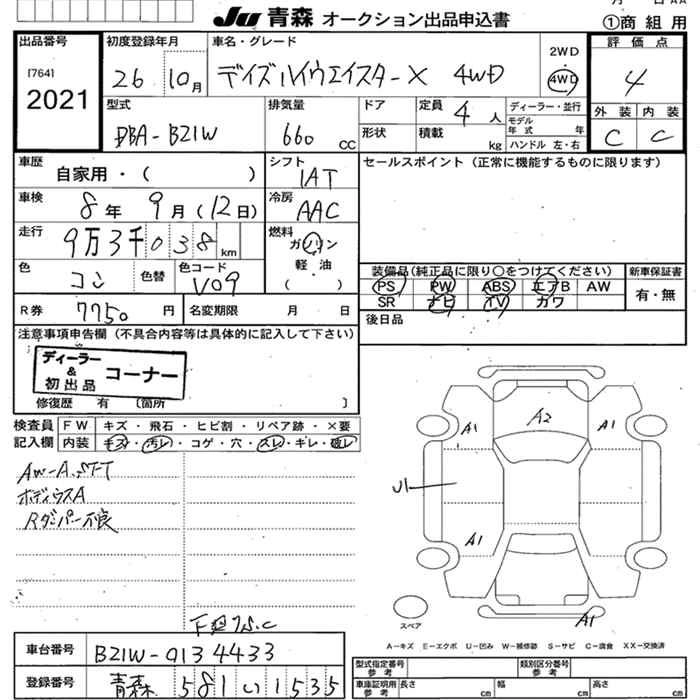 月 日 AA
JU 青森 オークション出品申込書
①商 組 用
出品番号
[764]
2021
初度登録年月
26 10月
車名・グレード
デイズハイウエイスターX 4WD
2WD
4WD
評 価 点
4
外 装 内 装
C C
型式
DBA-B21W
排気量
660 CC
ドア
形状
定員 4 人
積載 kg
ディーラー・並行
モデル
年 式 年
ハンドル 左・右
車歴 自家用・( )
シフト
IAT
車検 8 年 9 月 (12 日)
冷房
AAC
走行 9万3千038 km
燃料
ガソリン
軽 油
( )
色 コン 色替
色コード
V09
R券 7750 円
名変期限 月 日
セールスポイント (正常に機能するものに限ります)
装備品(純正品に限り○をつけてください)
PS PW ABS エアB AW
SR ナビ TV カワ
新車保証書
有・無
後日品
注意事項申告欄 (不具合内容等は具体的に記入して下さい)
ディーラー
&
初出品
コーナー
修復歴 有 〔箇所 〕
検査員
記入欄
FW キズ ・ 飛石 ・ ヒビ割 ・ リペア跡 ・ ×要
内装 キズ ・ 汚レ ・ コゲ ・ 穴 ・ スレ ・ ギレ ・ 破レ
AW-A.
ボディウスA
Rダンパー不良
A1
A2
A1
U1
A1
A1
スペア
A-キズ E-エクボ U-凹み W-補修跡 S-サビ C-腐食 XX-交換済
車台番号 B21W-0134433
登録番号 青森 581 い 1535
型式指定番号
参 考
類別区分番号
参 考
車庫証明用
参 考
長さ cm
幅 cm
高さ cm